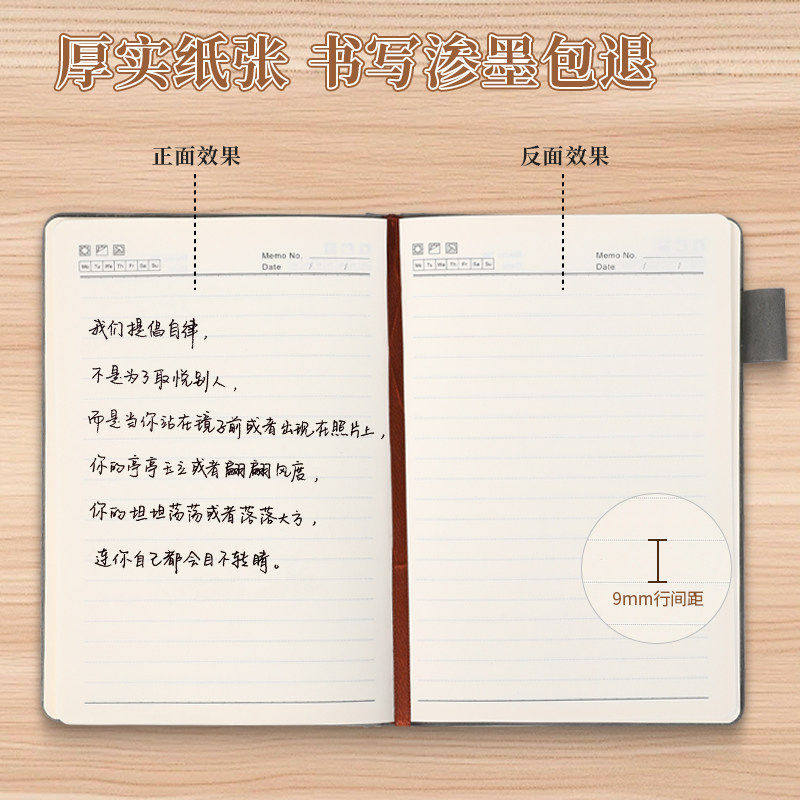 厚实纸张 书写渗墨包退
正面效果
反面效果
Memo No.
Mo Tu We Th Fr Sa Su
Date / /
Memo No.
Mo Tu We Th Fr Sa Su
Date / /
我们提倡自律,
不是为了取悦别人,
而是当你站在镜子前或者出现在照片上,
你的亭亭玉立或者翩翩风度,
你的坦坦荡荡或者落落大方,
连你自己都会目不转睛。
9mm行间距